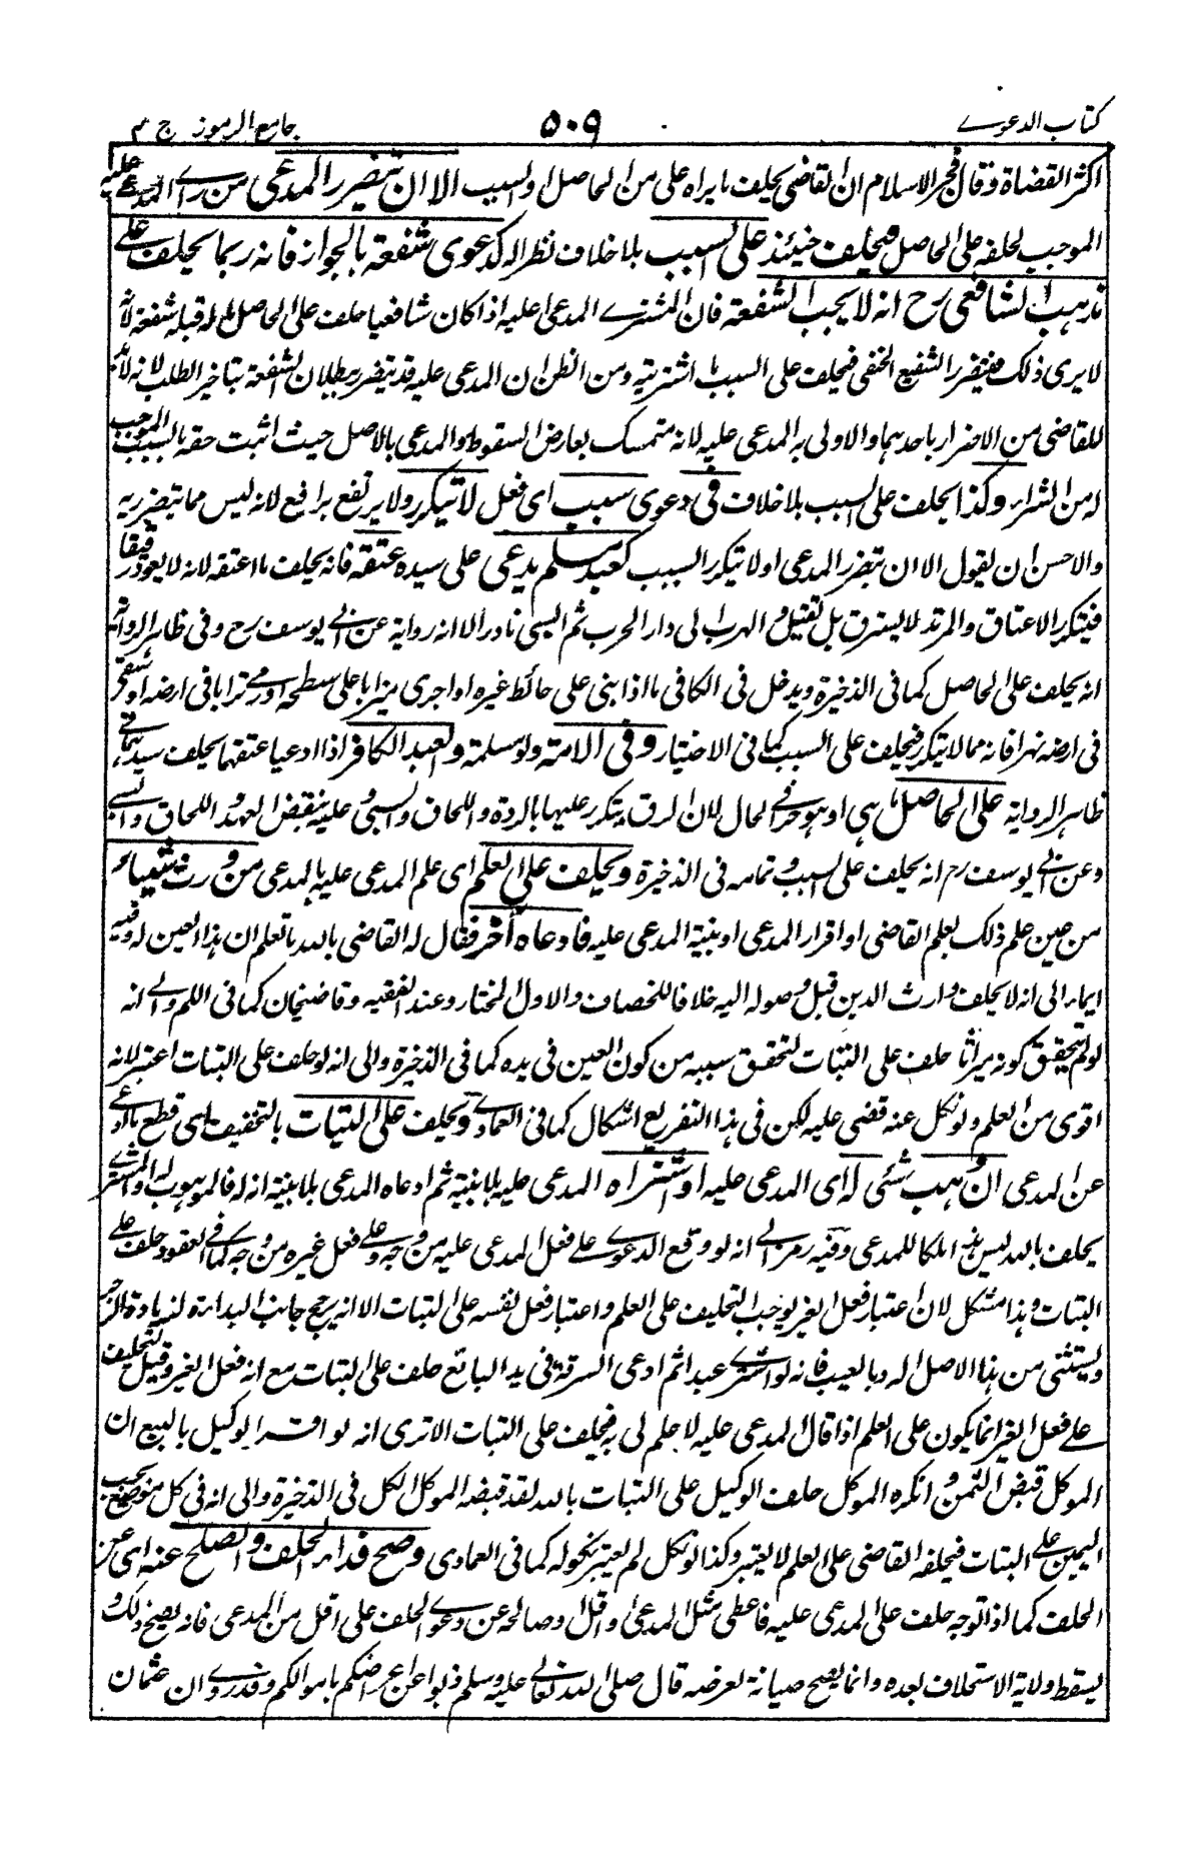 كتاب الدعوے ٥٠٩ جامع الرموز ج ٣
اكثر القضاة وقال فخر الاسلام ان القاضي يحلف ما يراه على من الحاصل او السبب الا ان يتضرر المدعى من رے المدعى عليه
الموجب لحلفه على الحاصل فيحلف حينئذ على السبب بلا خلاف نظرا له كدعوى شفعة بالجوار فانه ربما يحلف على
مذهب الشافعى رح انه لا يجب الشفعة فان المشترے المدعا عليه اذا كان شافعيا حلف على الحاصل ما له قبله شفعة لانه
لا يرى ذلك فيتضرر الشفيع الحنفى فيحلف على السبب ما اشتريته ومن الظن ان المدعى عليه قد يتضرر ببطلان الشفعة بتاخير الطلب لانه لا بد
للقاضى من الاضرار باحدهما والاولى به المدعى عليه لانه متمسك بعارض السقوط والمدعى بالاصل حيث اثبت حقه بالسبب الموجب
له من الشراء وكذا يحلف على السبب بلا خلاف فى دعوى سبب اى فعل لا يتكرر ولا يرتفع برافع لانه ليس مما يتضرر به
والاحسن ان يقول الا ان يتضرر المدعى او لا يتكرر السبب كعبد مسلم يدعى على سيده عتقه فانه يحلف ما اعتقه لانه لا يعود رقيقا
فيتكرر الاعتاق والمرتد لا يسترق بل يقتل والهرب الى دار الحرب ثم السبى نادر الا انه رواية عن ابى يوسف رح وفى ظاهر الرواية
انه يحلف على الحاصل كما فى الذخيرة ويدخل فى الكافى ما اذا بنى على حائط غيره او اجرى ميزابا على سطحه او رمى ترابا فى ارضه او شق
فى ارضه نهرا فانه مما لا يتكرر فيحلف على السبب كما فى الاختيار وفى الامة ولو مسلمة والعبد الكافر اذا ادعيا عتقهما يحلف سيدهما فى
ظاهر الرواية على الحاصل ما هى او هو حر فى الحال لان الرق يتكرر عليها بالردة واللحاق والسبى وعليه بنقض العهد واللحاق والسبى
وعن ابى يوسف رح انه يحلف على السبب وتمامه فى الذخيرة ويحلف على العلم اى علم المدعى عليه بالمدعى من ورث شيئا
من حين علم ذلك بعلم القاضى او اقرار المدعى او بينة المدعى عليه فادعاه آخر فقال له القاضى بالله ما تعلم ان هذا العين له وفيه
ايماء الى انه لا يحلف وارث الدين قبل وصوله اليه خلافا للخصاف والاول المختار وعند الفقيه وقاضيخان كما فى والى انه
لو لم يتحقق كونه ميراثا حلف على البتات لتحقق سببه من كون العين فى يده كما فى الذخيرة والى انه لو حلف على البتات اعتبر لانه
اقوى من العلم ولو نكل عنه قضى عليه لكن فى هذا التفريع اشكال كما فى العمادے ويحلف على البتات بالتخفيف اى قطع ما ادعى
عن المدعى ان وهب شئى له اى المدعى عليه او اشتراه المدعى عليه بلا بينة ثم ادعاه المدعى بلا بينة انه له فالموهوب له والمشترے
يحلف بالله ليس هذا ملكا للمدعى وفيه رمز الى انه لو وقع الدعوے على فعل المدعى عليه من وجه وعلى فعل غيره من وجه كما فى العقود حلف على
البتات وهذا مشكل لان اعتبار فعل الغير يوجب التحليف على العلم واعتبار فعل نفسه على البتات الا انه يرجح جانب البداءة لزيادة الزجر
ويستثنى من هذا الاصل الرد بالعيب فانه لو اشترے عبدا ثم ادعى السرقة فى يد البائع حلف على البتات مع انه فعل الغير وقيل التحليف
على فعل الغير انما يكون على العلم اذا قال المدعى عليه لا علم لى به فيحلف على البتات الا ترى انه لو اقر الوكيل بالبيع ان
الموكل قبض الثمن وانكره الموكل حلف الوكيل على البتات بالله لقد قبضه الموكل الكل فى الذخيرة والى انه فى كل موضع يجب
اليمين على البتات فيحلفه القاضى على العلم لا يعتبر وكذا لو نكل لم يعتبر نكوله كما فى العمادى وصح فداء الحلف والصلح عنه اى عن
الحلف كما اذا توجه حلف على المدعى عليه فاعطى مثل المدعى او اقل او صالحه عن دعوے الحلف على اقل من المدعى فانه يصح ذلك و
يسقط ولاية الاستحلاف بعده وانما يصح صيانة لعرضه قال صلى الله تعالى عليه وسلم ذبوا عن اعراضكم باموالكم وقد روى ان عثمان